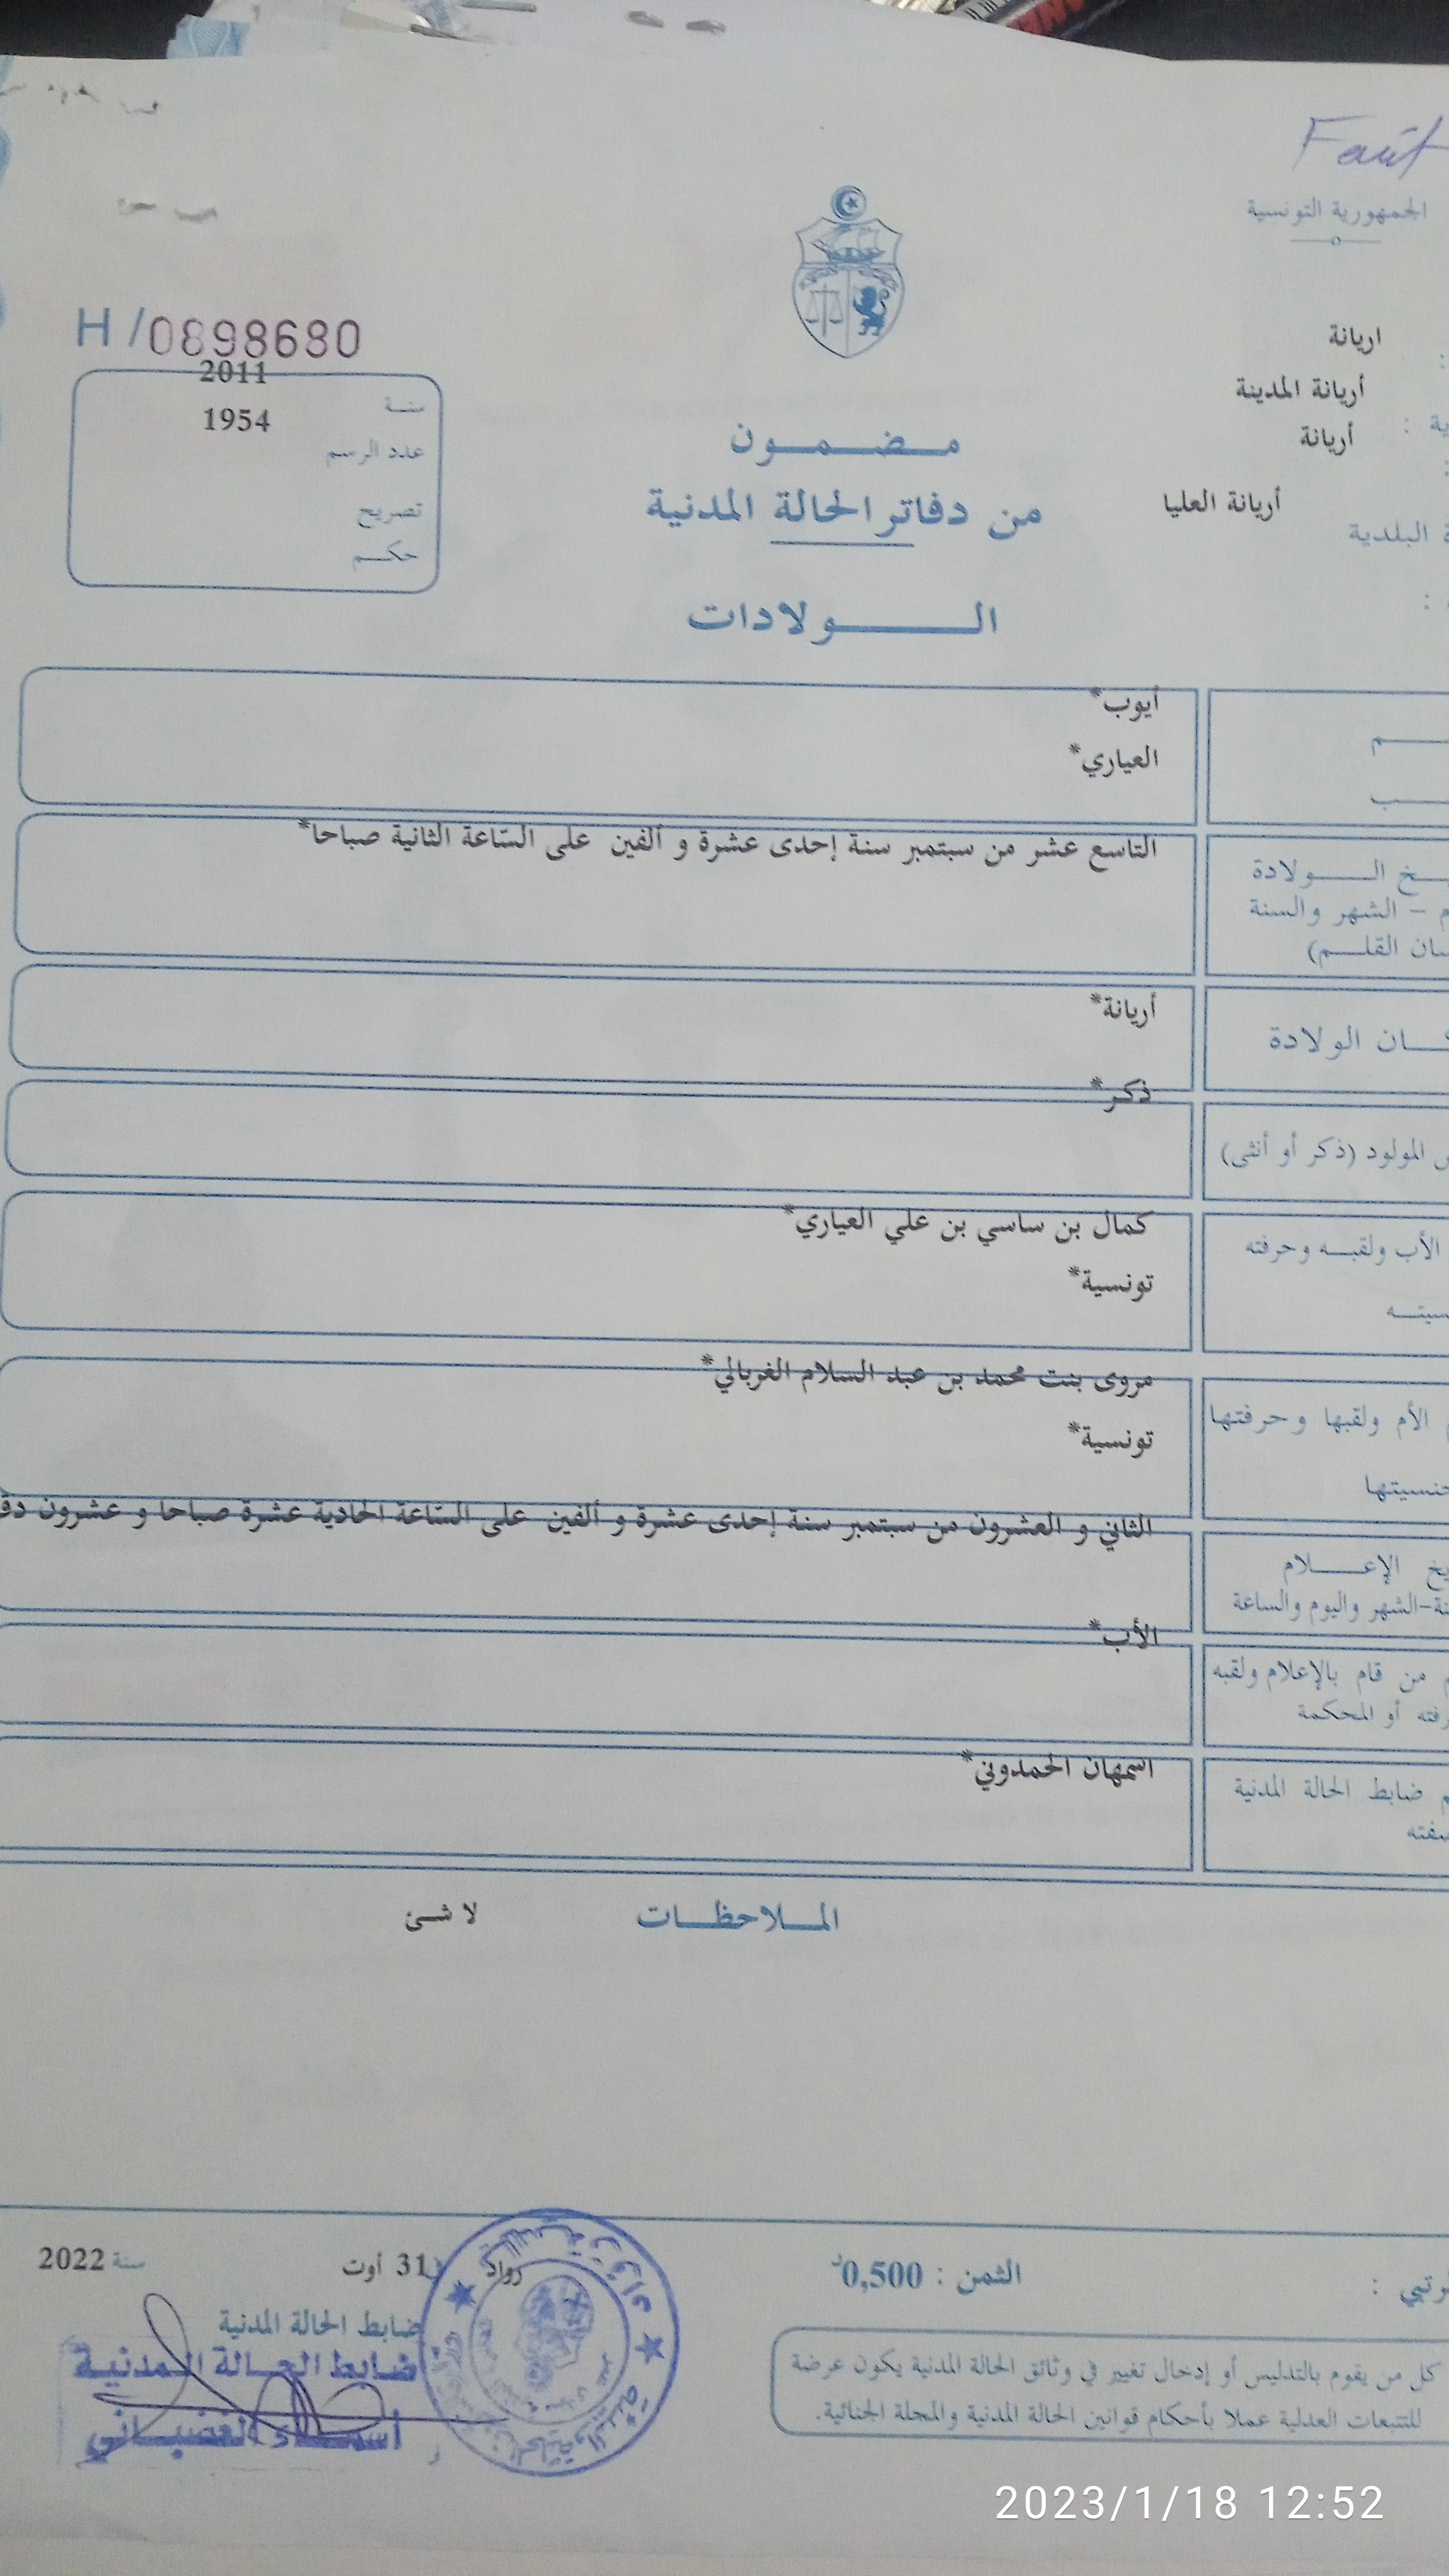 Fait
الجمهورية التونسية
اريانة
أريانة المدينة
أريانة
أريانة العليا
البلدية
H /0898680
2011
سنة
1954
عدد الرسم
تصريح
حكم
مضمون
من دفاتر الحالة المدنية
الولادات
أيوب*
العياري*
التاسع عشر من سبتمبر سنة إحدى عشرة و ألفين على الساعة الثانية صباحا*
الولادة
– الشهر والسنة
القلم)
أريانة*
الولادة
ذكر*
المولود (ذكر أو أنثى)
كمال بن ساسي بن علي العياري*
الأب ولقبه وحرفته
تونسية*
مروى بنت محمد بن عبد السلام الغربالي*
الأم ولقبها وحرفتها
تونسية*
الثاني و العشرون من سبتمبر سنة إحدى عشرة و ألفين على الساعة الحادية عشرة صباحا و عشرون
الإعلام
-الشهر واليوم والساعة
الأب*
من قام بالإعلام ولقبه
أو المحكمة
اسمهان الحمدوني*
ضابط الحالة المدنية
الملاحظات
لا شئ
رواد
31 أوت
سنة 2022
الثمن : 0,500د
ضابط الحالة المدنية
ضابط الحالة المدنية
أسماء الغضباني
كل من يقوم بالتدليس أو إدخال تغيير في وثائق الحالة المدنية يكون عرضة
للتتبعات العدلية عملا بأحكام قوانين الحالة المدنية والمجلة الجنائية.
2023/1/18 12:52